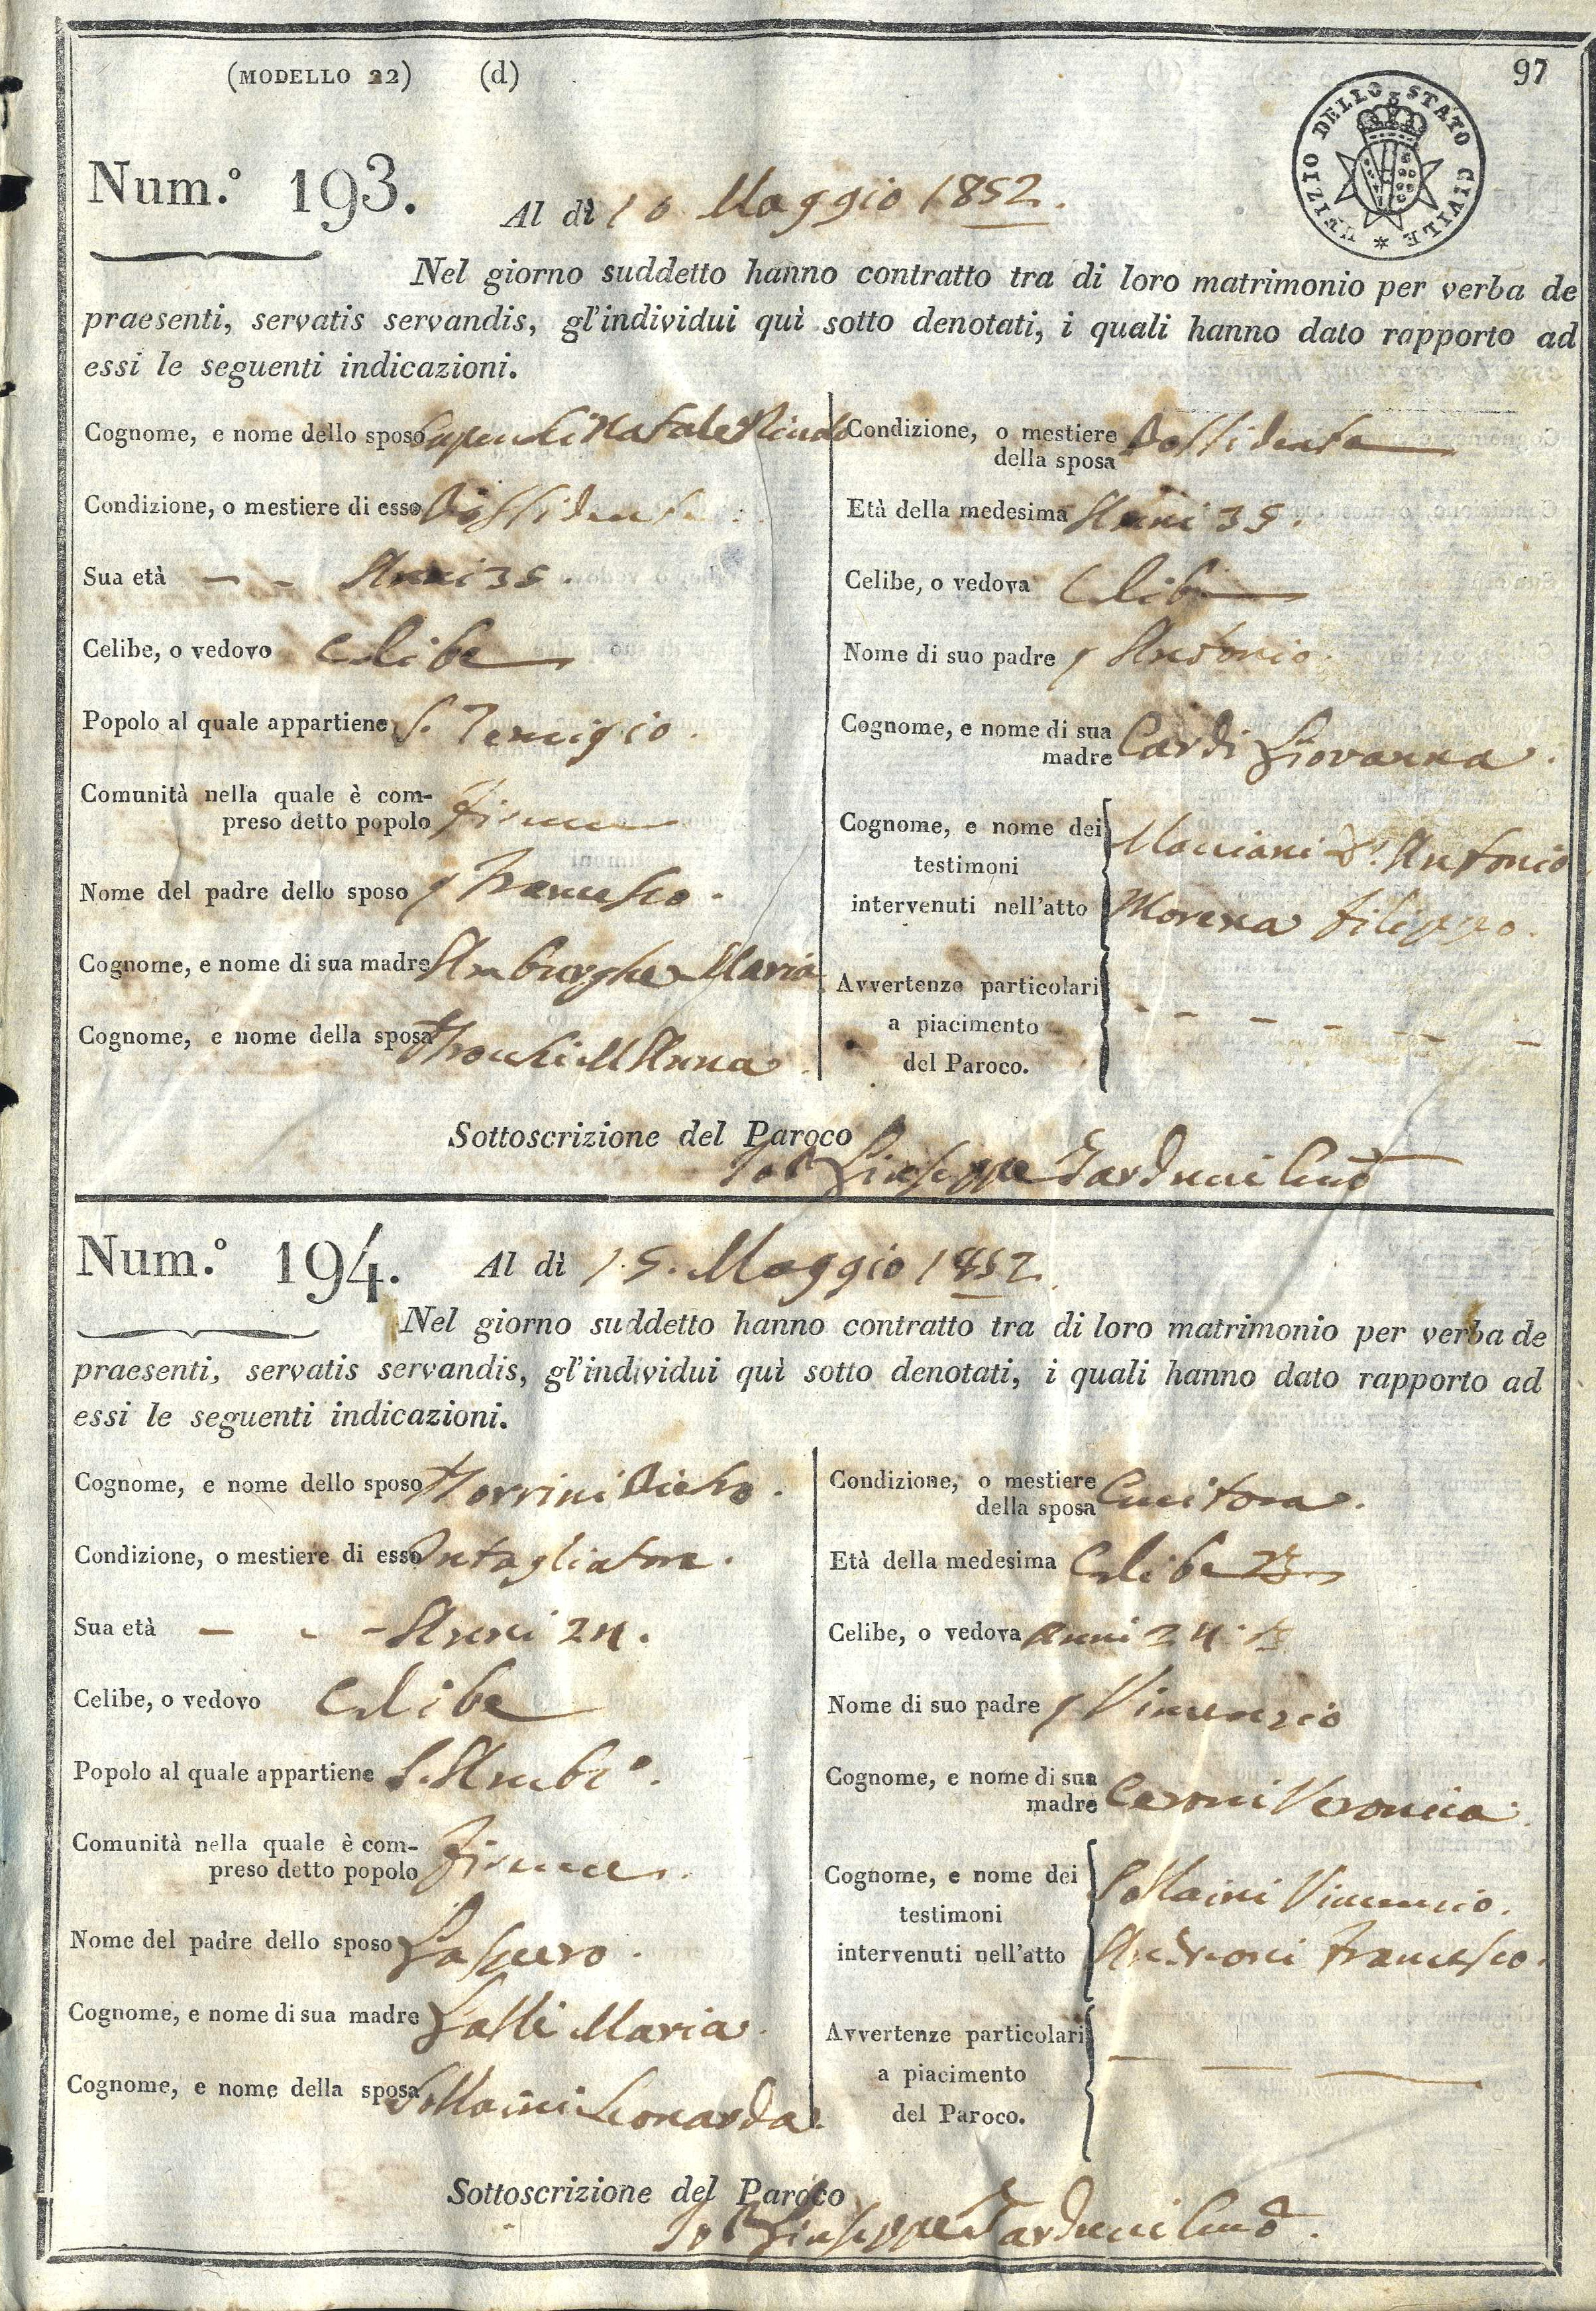 (MODELLO 22) (d) 97
UFIZIO DELLO STATO CIVILE *
Num.º 193. Al dì 10 Maggio 1852.
Nel giorno suddetto hanno contratto tra di loro matrimonio per verba de
praesenti, servatis servandis, gl'individui quì sotto denotati, i quali hanno dato rapporto ad
essi le seguenti indicazioni.
Cognome, e nome dello sposo Natale
Condizione, o mestiere di esso Possidente
Sua età - - Anni 35.
Celibe, o vedovo Celibe
Popolo al quale appartiene S. Remigio.
Comunità nella quale è com-
preso detto popolo Firenze
Nome del padre dello sposo Francesco.
Cognome, e nome di sua madre Amburghe Maria
Cognome, e nome della sposa Anna
Condizione, o mestiere
della sposa Possidente
Età della medesima Anni 35.
Celibe, o vedova Celibe
Nome di suo padre Antonio
Cognome, e nome di sua
madre Cardi Giovanna.
Cognome, e nome dei
testimoni Antonio
intervenuti nell'atto Morena Filippo.
Avvertenze particolari
a piacimento - - - - - -
del Paroco.
Sottoscrizione del Paroco
Giuseppe Tarducci
Num.º 194. Al dì 15. Maggio 1852.
Nel giorno suddetto hanno contratto tra di loro matrimonio per verba de
praesenti, servatis servandis, gl'individui quì sotto denotati, i quali hanno dato rapporto ad
essi le seguenti indicazioni.
Cognome, e nome dello sposo Pietro.
Condizione, o mestiere di esso Intagliatore.
Sua età - - - Anni 24.
Celibe, o vedovo Celibe
Popolo al quale appartiene S. Ambº.
Comunità nella quale è com-
preso detto popolo Firenze.
Nome del padre dello sposo Gaspero.
Cognome, e nome di sua madre Galli Maria.
Cognome, e nome della sposa Leonarda.
Condizione, o mestiere
della sposa Cucitora.
Età della medesima Celibe
Celibe, o vedova Anni 24.
Nome di suo padre Vincenzio
Cognome, e nome di sua
madre Ceroni Veronica.
Cognome, e nome dei
testimoni Vincenzio.
intervenuti nell'atto Andreoni Francesco.
Avvertenze particolari
a piacimento
del Paroco.
Sottoscrizione del Paroco
Giuseppe Tarducci